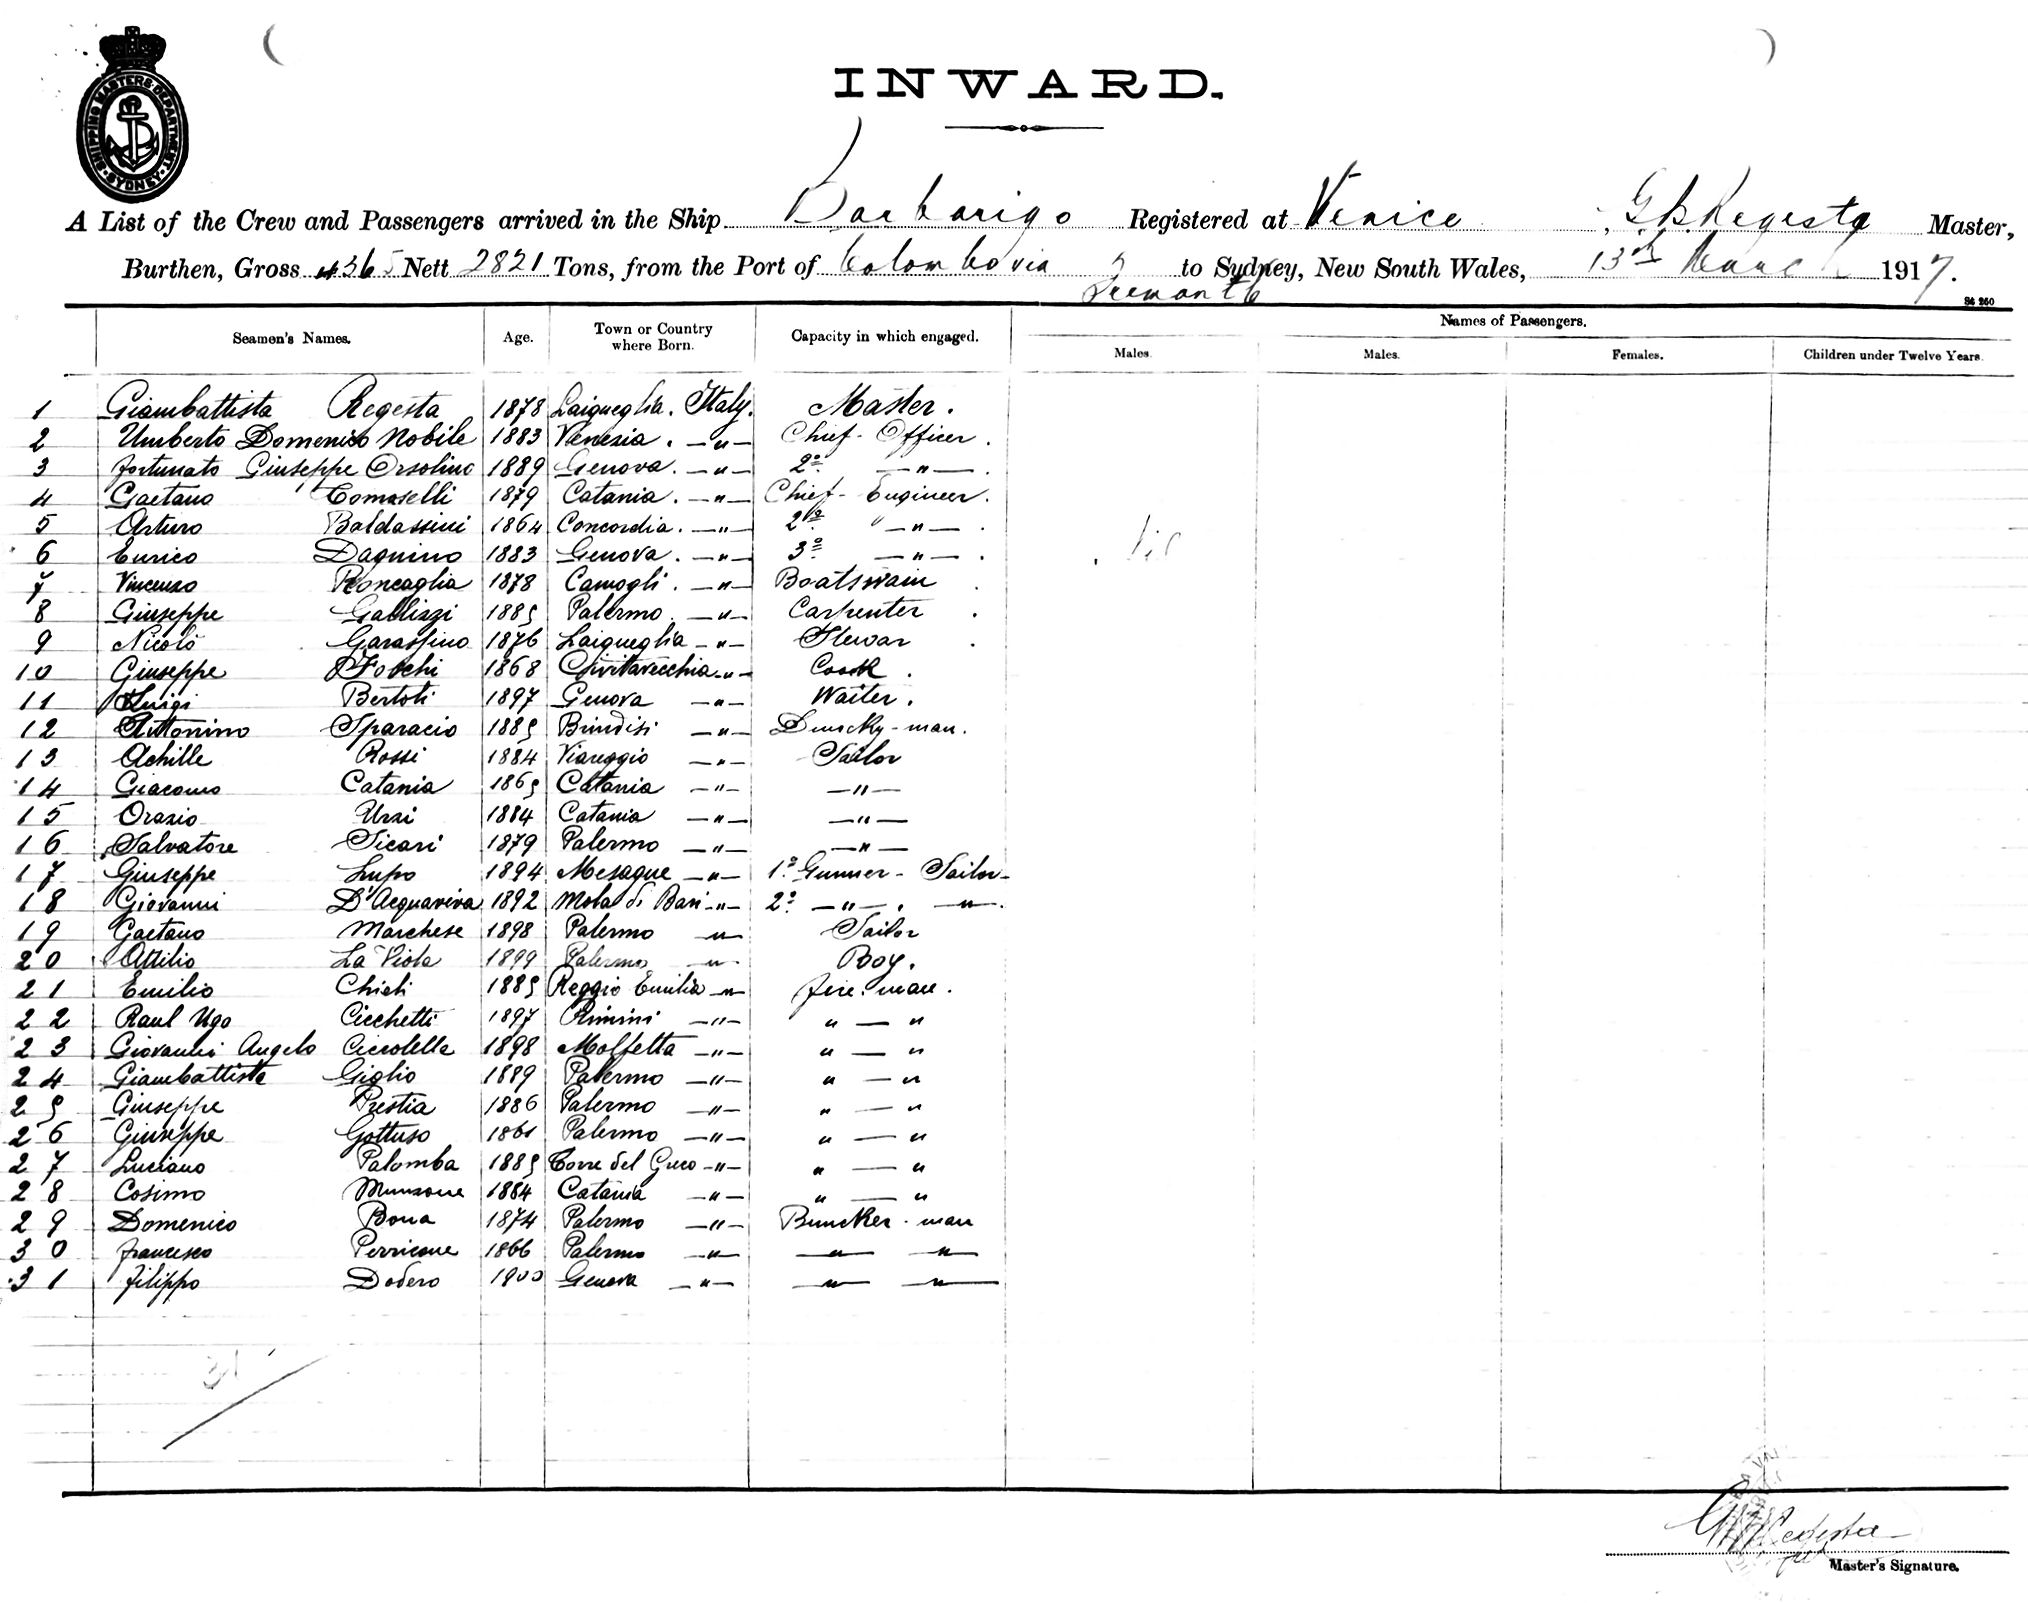 SHIPPING MASTERS DEPARTMENT SYDNEY
INWARD.
A List of the Crew and Passengers arrived in the Ship Barbarigo Registered at Venice G.B. Regesta Master,
Burthen, Gross 4365 Nett 2821 Tons, from the Port of Colombo via Fremantle to Sydney, New South Wales, 13th March 1917.
S4 260
Seamen's Names. Age. Town or Country where Born. Capacity in which engaged. Names of Passengers.
Males. Males. Females. Children under Twelve Years.
1 Giambattista Regesta 1878 Laigueglia. Italy. Master.
2 Umberto Domenico Nobile 1883 Venezia. —"— Chief Officer.
3 Fortunato Giuseppe Orsolino 1889 Genova. —"— 2º —"—.
4 Gaetano Tomaselli 1879 Catania. —"— Chief Engineer.
5 Arturo Baldassini 1864 Concordia. —"— 2º —"—.
6 Enrico Dagnino 1883 Genova. —"— 3º —"—.
7 Vincenzo Roncaglia 1878 Camogli. —"— Boatswain
8 Giuseppe Gallizzi 1885 Palermo. —"— Carpenter.
9 Nicolò Garassino 1876 Laigueglia —"— Stewar.
10 Giuseppe Foschi 1868 Civitavecchia —"— Coock.
11 Luigi Bertoli 1897 Genova —"— Waiter.
12 Antonino Sparacio 1885 Brindisi —"— Duncky-man.
13 Achille Rossi 1884 Viareggio —"— Sailor
14 Giacomo Catania 1865 Catania —"— —"—
15 Orazio Urzi 1884 Catania —"— —"—
16 Salvatore Sicari 1879 Palermo —"— —"—
17 Giuseppe Lupo 1894 Mesagne —"— 1º Gunner - Sailor -
18 Giovanni D'Acquaviva 1892 Mola di Bari —"— 2º —"—. —"—.
19 Gaetano Marchese 1898 Palermo —"— Sailor
20 Attilio La Viola 1899 Palermo —"— Boy.
21 Emilio Chieli 1885 Reggio Emilia —"— Fire-man.
22 Raul Ugo Cicchetti 1897 Rimini —"— " — "
23 Giovanni Angelo Ciccolella 1898 Molfetta —"— " — "
24 Giambattista Giglio 1889 Palermo —"— " — "
25 Giuseppe Prestia 1886 Palermo —"— " — "
26 Giuseppe Gottuso 1861 Palermo —"— " — "
27 Luciano Palomba 1885 Torre del Greco —"— " — "
28 Cosimo Munzone 1884 Catania —"— " — "
29 Domenico Bona 1874 Palermo —"— Buncker-man
30 Francesco Perricone 1866 Palermo —"— —"— —"—
31 Filippo Dodero 1900 Genova —"— —"— —"—
31
Master's Signature.